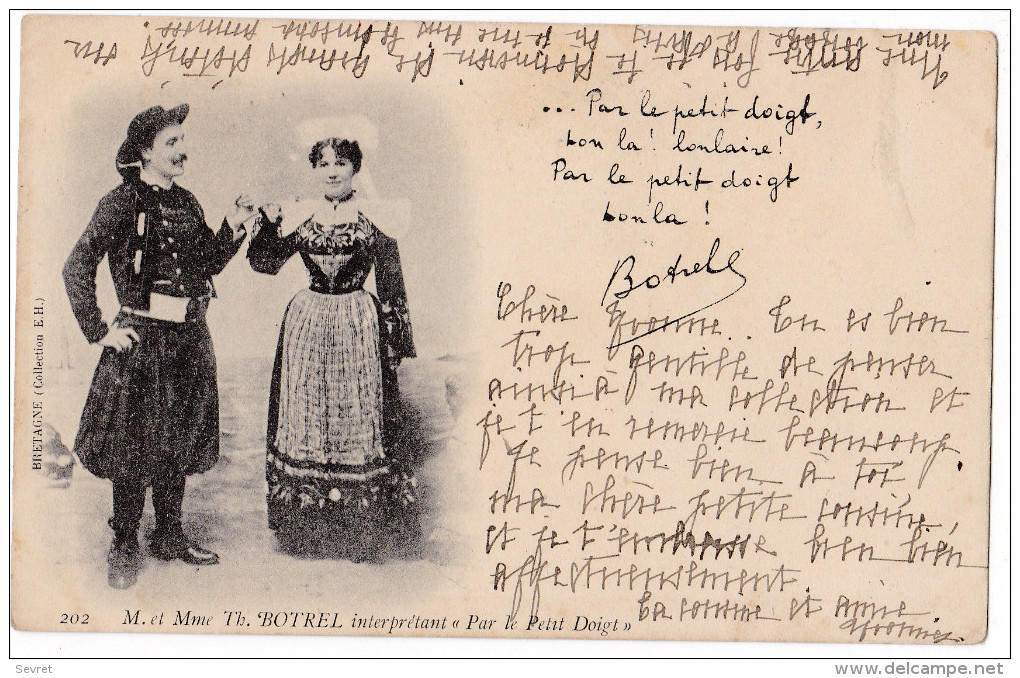 ... Par le petit doigt,
lon la! lonlaire!
Par le petit doigt
lonla!
Botrel
Chère Yvonne. Tu es bien
trop gentille de penser
ainsi à ma collection et
je t'en remercie beaucoup.
Je pense bien à toi
ma chère petite cousine,
et je t'embrasse bien bien
affectueusement.
Ta cousine et amie
BRETAGNE (Collection E.H.)
202 M. et Mme Th. BOTREL interprétant « Par le Petit Doigt »
Une autre fois je te
Sevret
www.delcampe.net